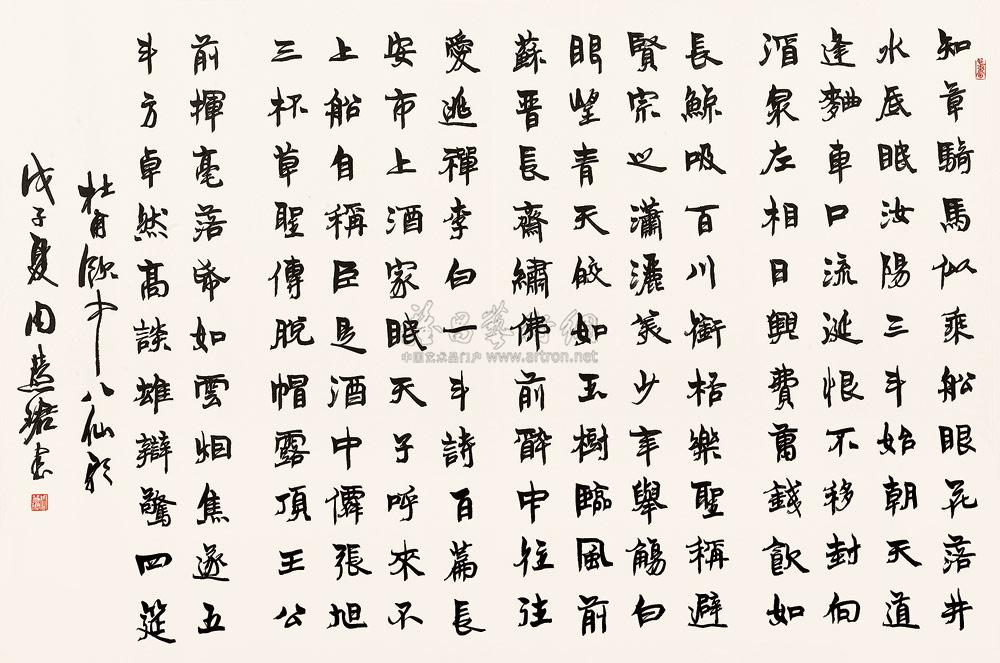 知章騎馬似乘船眼花落井
水底眠汝陽三斗始朝天道
逢麯車口流涎恨不移封向
酒泉左相日興費萬錢飲如
長鯨吸百川銜杯樂聖稱避
賢宗之瀟灑美少年舉觴白
眼望青天皎如玉樹臨風前
蘇晉長齋繡佛前醉中往往
愛逃禪李白一斗詩百篇長
安市上酒家眠天子呼來不
上船自稱臣是酒中僊張旭
三杯草聖傳脫帽露頂王公
前揮毫落帋如雲烟焦遂五
斗方卓然高談雄辯驚四筵
杜甫飲中八仙歌
戊子夏周慧珺書
雅昌藝術網
中国艺术品门户 www.artron.net